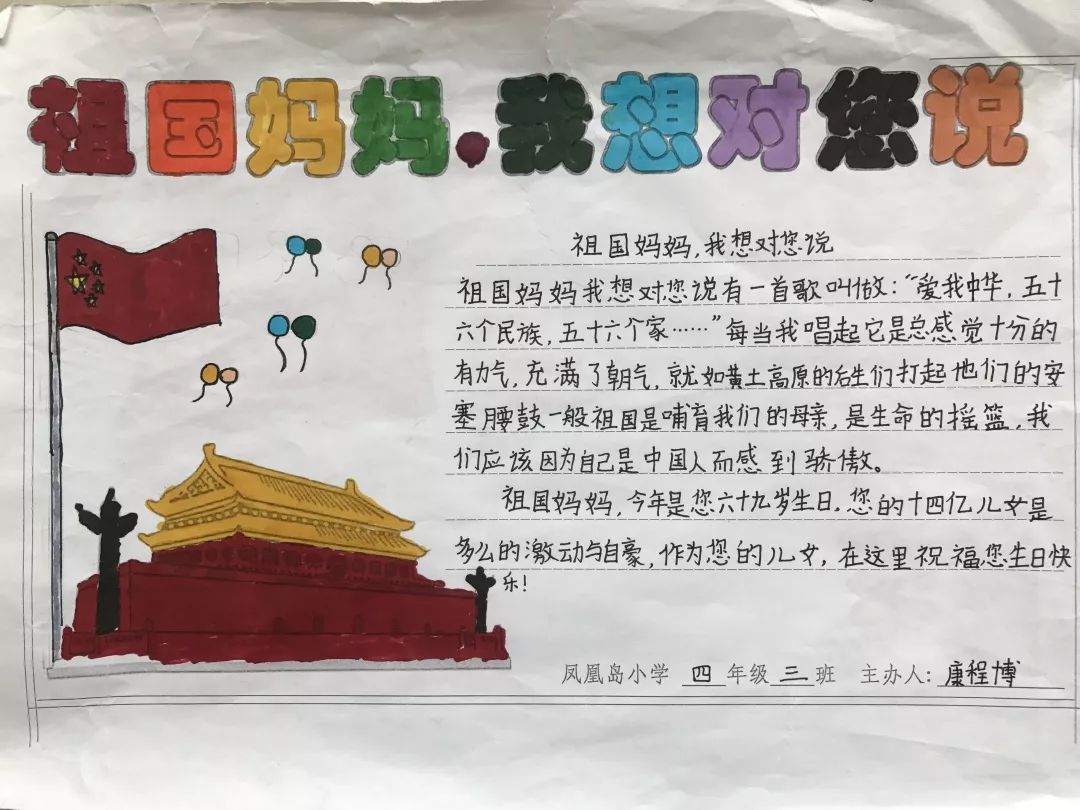 祖国妈妈·我想对您说
祖国妈妈,我想对您说
祖国妈妈我想对您说有一首歌叫做:“爱我中华,五十
六个民族,五十六个家……”每当我唱起它是总感觉十分的
有力气,充满了朝气,就如黄土高原的后生们打起他们的安
塞腰鼓一般祖国是哺育我们的母亲,是生命的摇篮,我
们应该因为自己是中国人而感到骄傲。
祖国妈妈,今年是您六十九岁生日.您的十四亿儿女是
多么的激动与自豪,作为您的儿女,在这里祝福您生日快
乐!
凤凰岛小学 四年级三班 主办人:康程博